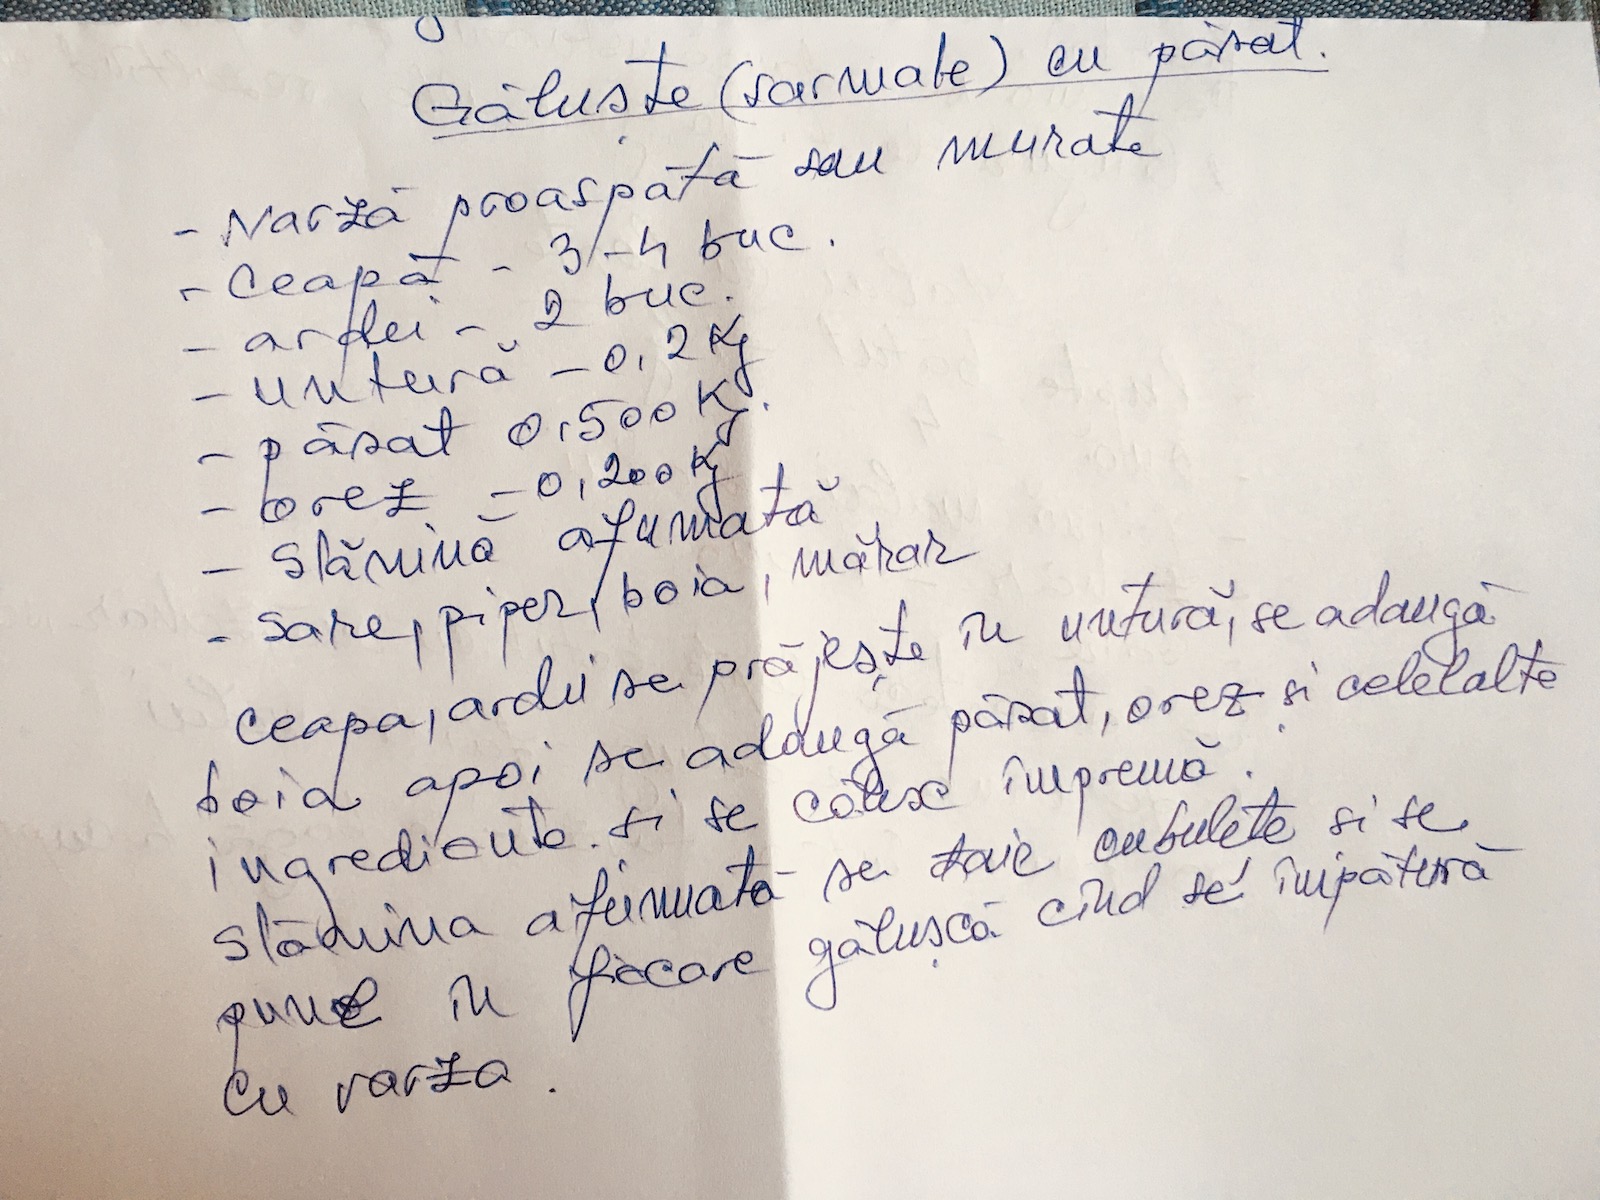 Găluște (sarmale) cu păsat.
- Varză proaspătă sau murate
- Ceapă - 3-4 buc.
- ardei - 2 buc.
- untură - 0,2 Kg
- păsat 0,500 Kg.
- orez - 0,200 Kg
- slănină afumată
- sare, piper, boia, mărar
Ceapa, ardei se prăjește în untură, se adaugă
boia apoi se adaugă păsat, orez și celelalte
ingrediente. si se călesc împreună.
Slănina afumată se taie cubulete si se
pune în fiecare gălușcă cînd se împătură
cu varza.